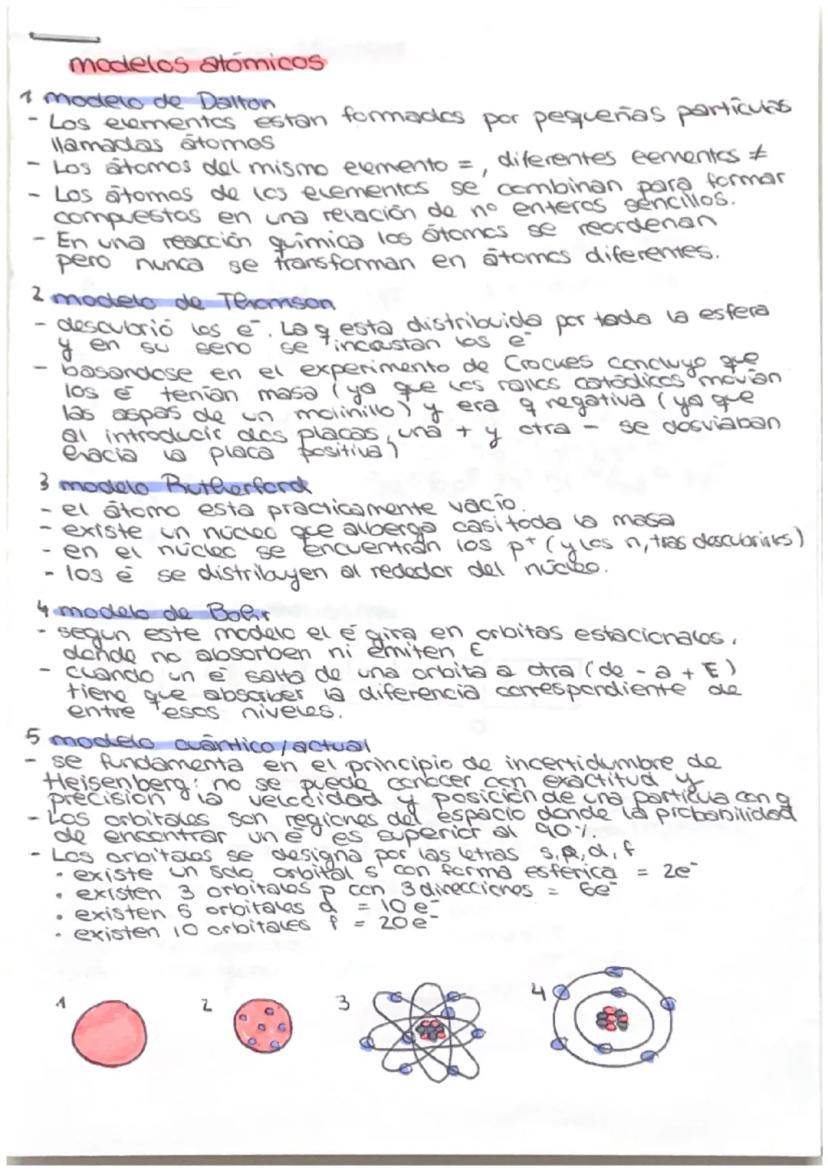 modelos atómicos
1 modelo de Dalton
- Los elementos están formados por pequeñas partículas
llamadas átomos
- Los átomos del mismo elemento =, diferentes eementos ≠
- Los átomos de los elementos se combinan para formar
compuestos en una relación de nº enteros sencillos.
- En una reacción química los átomos se reordenan
pero nunca se transforman en átomos diferentes.
2 modelo de Thomson
- descubrió los e⁻. La q esta distribuida por toda la esfera
y en su seno se incrustan los e⁻
- basandose en el experimento de Crocues concluyo que
los e⁻ tenían masa (ya que los rallos catódicos movían
las aspas de un molinillo) y era q negativa (ya que
al introducir dos placas, una + y otra - se desviaban
hacia la placa positiva)
3 modelo Rutherford
- el átomo esta practicamente vacío.
- existe un núcleo que alberga casi toda la masa
- en el núcleo se encuentran los p⁺ (y los n, tras descubrirlos)
- los e⁻ se distribuyen al rededor del núcleo.
4 modelo de Bohr
- segun este modelo el e⁻ gira en orbitas estacionales,
donde no absorben ni emiten E
- cuando un e⁻ salta de una orbita a otra (de - a + E)
tiene que absorber la diferencia correspondiente de
entre esos niveles.
5 modelo cuántico/actual
- se fundamenta en el principio de incertidumbre de
Heisenberg: no se puede conocer con exactitud y
precisión la velocidad y posición de una partícula con q
- Los orbitales son regiones del espacio donde la probabilidad
de encontrar un e⁻ es superior al 90%.
- Los orbitales se designa por las letras s, p, d, f
• existe un solo orbital s con forma esférica = 2e⁻
• existen 3 orbitales p con 3 direcciones = 6e⁻
• existen 5 orbitales d = 10 e⁻
• existen 10 orbitales f = 20e⁻
1 2 3 4